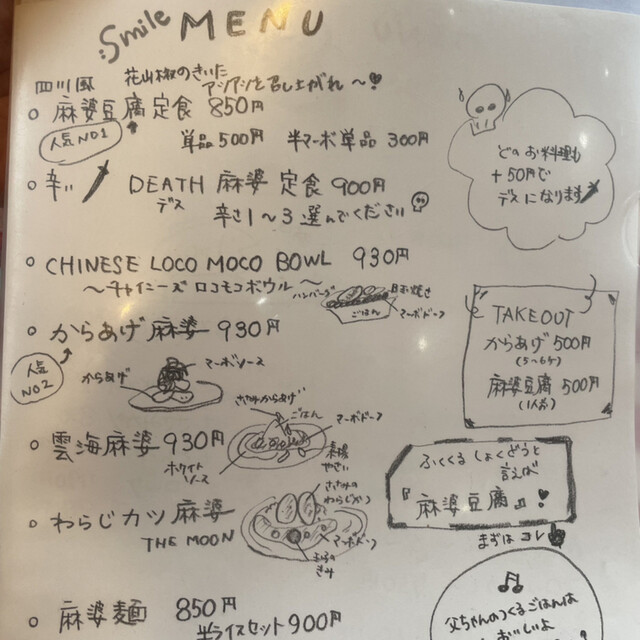 Smile MENU
四川風 花山椒のきいた
アツアツを召し上がれ〜♥
○ 麻婆豆腐定食 850円
人気NO1
単品500円 半マーボ単品 300円
○ 辛い DEATH 麻婆 定食 900円
デス
辛さ1〜3選んでください
○ CHINESE LOCO MOCO BOWL 930円
〜チャイニーズ ロコモコボウル〜
ハンバーグ
目玉焼き
ごはん
マーボドーフ
○ からあげ麻婆 930円
人気NO2
からあげ
マーボソース
○ 雲海麻婆 930円
ささみからあげ
ごはん
マーボドーフ
素揚やさい
ホワイトソース
○ わらじカツ麻婆
THE MOON
ささみのわらじかつ
マーボドーフ
○ 麻婆麺 850円
半ライスセット900円
どのお料理も
+50円で
デスになります
TAKEOUT
からあげ 500円
(5〜6ヶ)
麻婆豆腐 500円
(1人前)
ふくくる しょくどうと
言えば
『麻婆豆腐』!♥
まずはコレ
♫
父ちゃんのつくるごはんは
おいしいよ